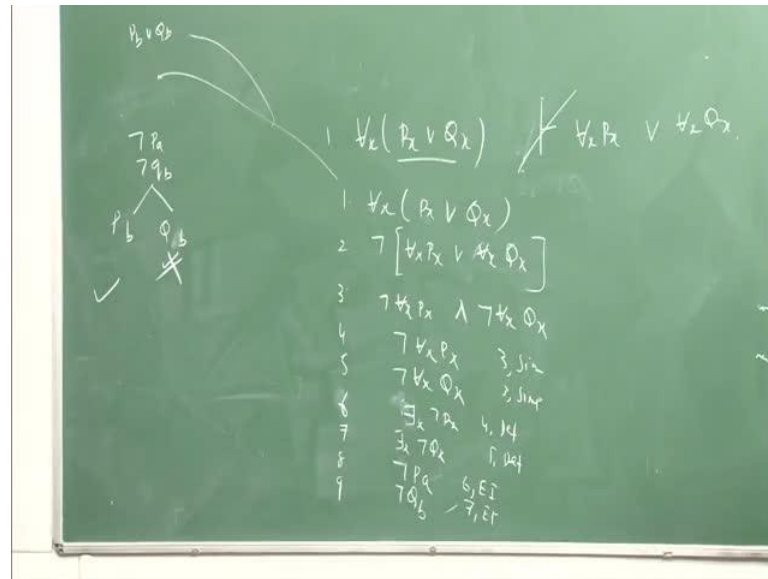 Pb ∨ Qb
¬Pa
¬qb
Pb Qb
1 ∀x(Px ∨ Qx) ⊬ ∀xPx ∨ ∀xQx.
1. ∀x(Px ∨ Qx)
2 ¬[∀xPx ∨ ∀xQx]
3 ¬∀xPx ∧ ¬∀xQx
4 ¬∀xPx 3, Sim
5 ¬∀xQx 3, Simp
6 ∃x¬Px 4, Def
7 ∃x¬Qx 5, Def
8 ¬Pa 6, EI
9 ¬Qb 7, EI